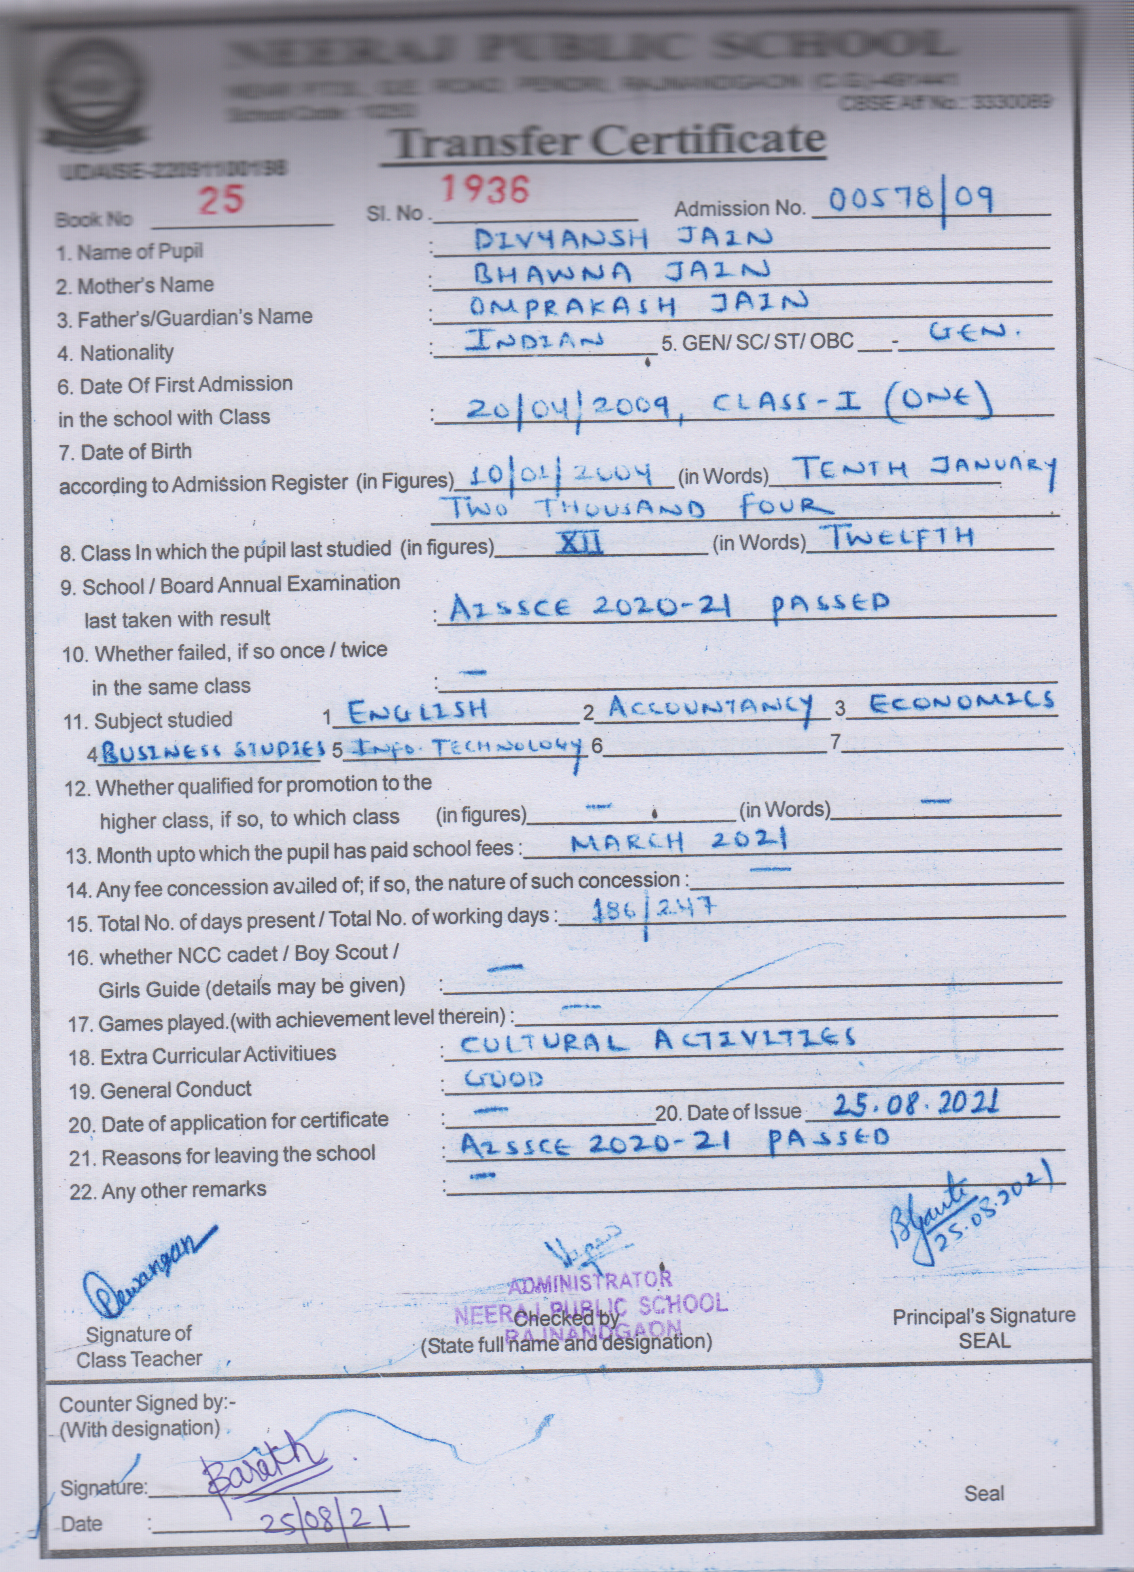 NEERAJ PUBLIC SCHOOL
ROAD, PENDRI, RAJNANDGAON (C.G.)-491441
School Code :
CBSE Aff No.: 3330089
Transfer Certificate
UDAISE-22091100198
Book No 25 Sl. No. 1936 Admission No. 00578/09
1. Name of Pupil : DIVYANSH JAIN
2. Mother's Name : BHAWNA JAIN
3. Father's/Guardian's Name : OMPRAKASH JAIN
4. Nationality : INDIAN 5. GEN/ SC/ ST/ OBC - GEN.
6. Date Of First Admission
in the school with Class : 20/04/2009, CLASS-I (ONE)
7. Date of Birth
according to Admission Register (in Figures) 10/01/2004 (in Words) TENTH JANUARY
TWO THOUSAND FOUR
8. Class In which the pupil last studied (in figures) XII (in Words) TWELFTH
9. School / Board Annual Examination
last taken with result : AISSCE 2020-21 PASSED
10. Whether failed, if so once / twice
in the same class : —
11. Subject studied 1 ENGLISH 2 ACCOUNTANCY 3 ECONOMICS
4 BUSINESS STUDIES 5 INFO. TECHNOLOGY 6 7
12. Whether qualified for promotion to the
higher class, if so, to which class (in figures) — (in Words) —
13. Month upto which the pupil has paid school fees : MARCH 2021
14. Any fee concession availed of; if so, the nature of such concession : —
15. Total No. of days present / Total No. of working days : 186/247
16. whether NCC cadet / Boy Scout /
Girls Guide (details may be given) : —
17. Games played.(with achievement level therein) : —
18. Extra Curricular Activitiues : CULTURAL ACTIVITIES
19. General Conduct : GOOD
20. Date of application for certificate : — 20. Date of Issue 25.08.2021
21. Reasons for leaving the school : AISSCE 2020-21 PASSED
22. Any other remarks : —
25.08.2021
Dewangan
ADMINISTRATOR
NEERAJ PUBLIC SCHOOL
RAJNANDGAON
Signature of
Class Teacher
Checked by
(State full name and designation)
Principal's Signature
SEAL
Counter Signed by:-
(With designation)
Signature: Barath
Seal
Date : 25/08/21